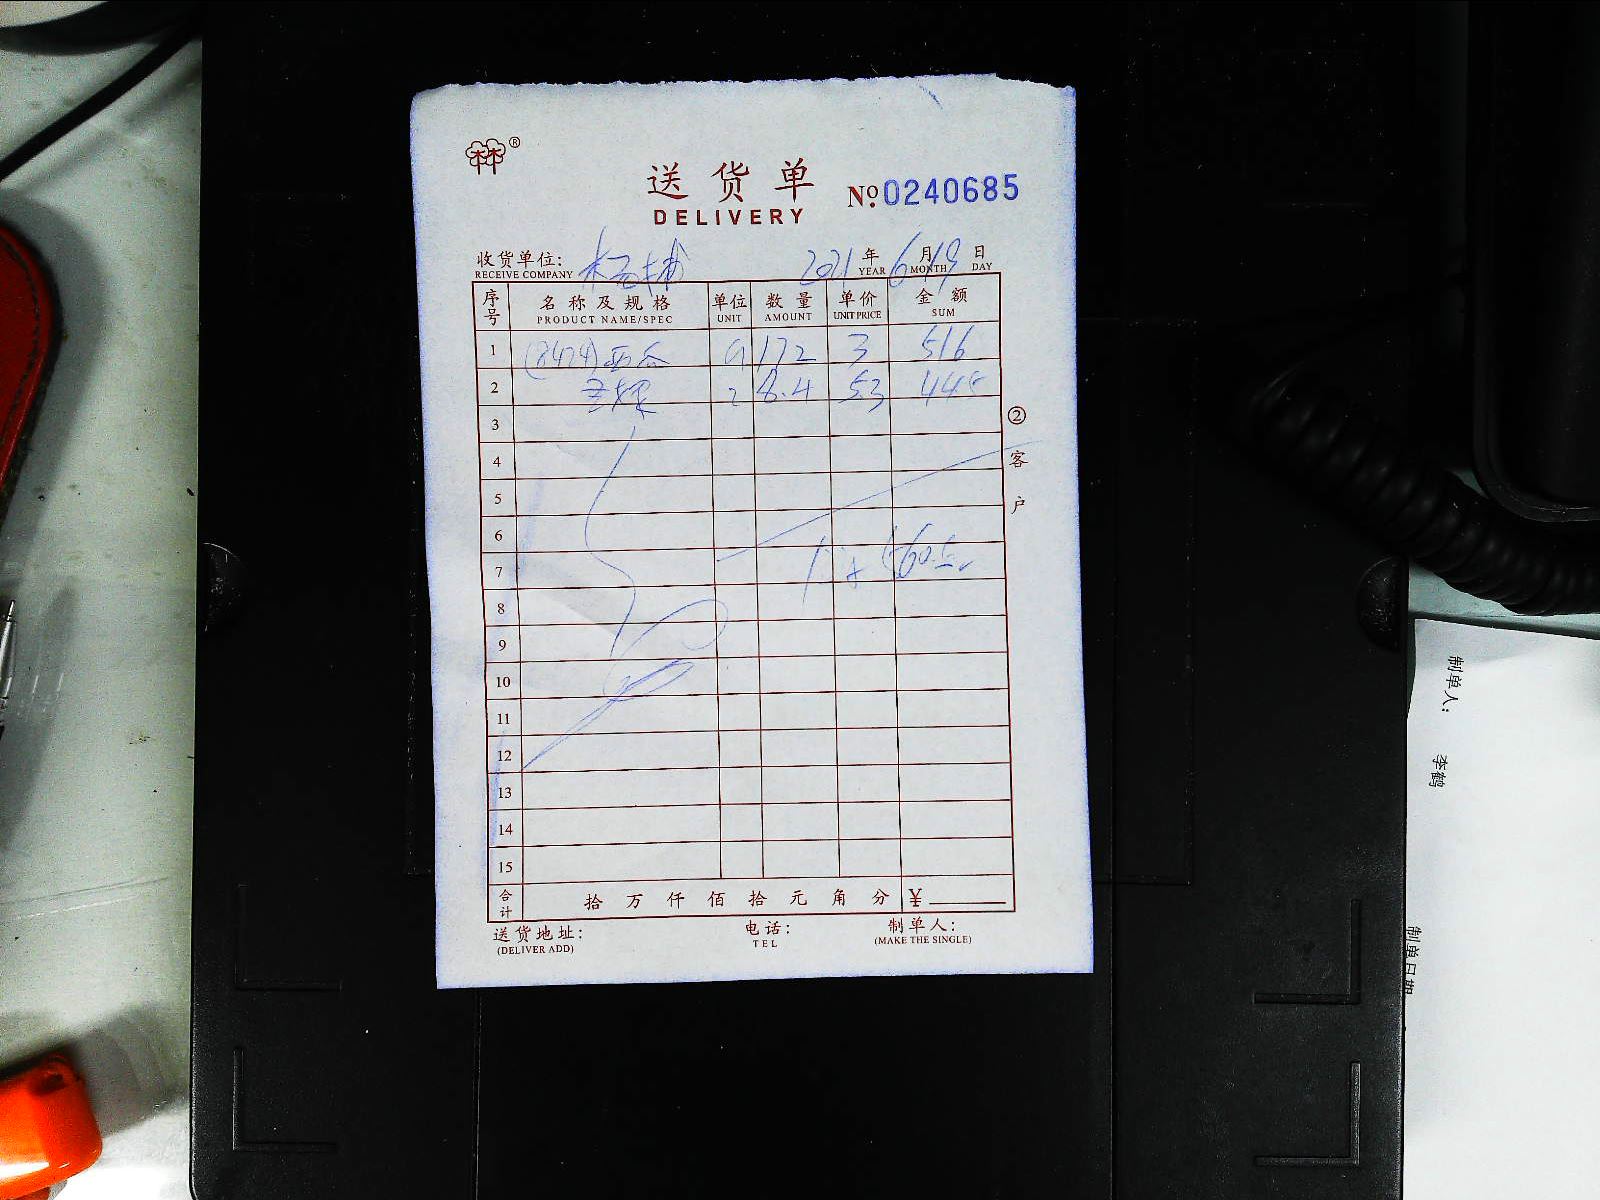 ®
送货单
DELIVERY
№0240685
收货单位: 2021年6月19日
RECEIVE COMPANY YEAR MONTH DAY
序号 名称及规格 单位 数量 单价 金额
PRODUCT NAME/SPEC UNIT AMOUNT UNIT PRICE SUM
1 (8424)西瓜 172 3 516
2 8.4 5.3 445
3
4
5
6
7 560.5
8
9
10
11
12
13
14
15
②客户
合计 拾 万 仟 佰 拾 元 角 分 ¥
送货地址: 电话: 制单人:
(DELIVER ADD) TEL (MAKE THE SINGLE)
制单人: 李鹤
制单日期